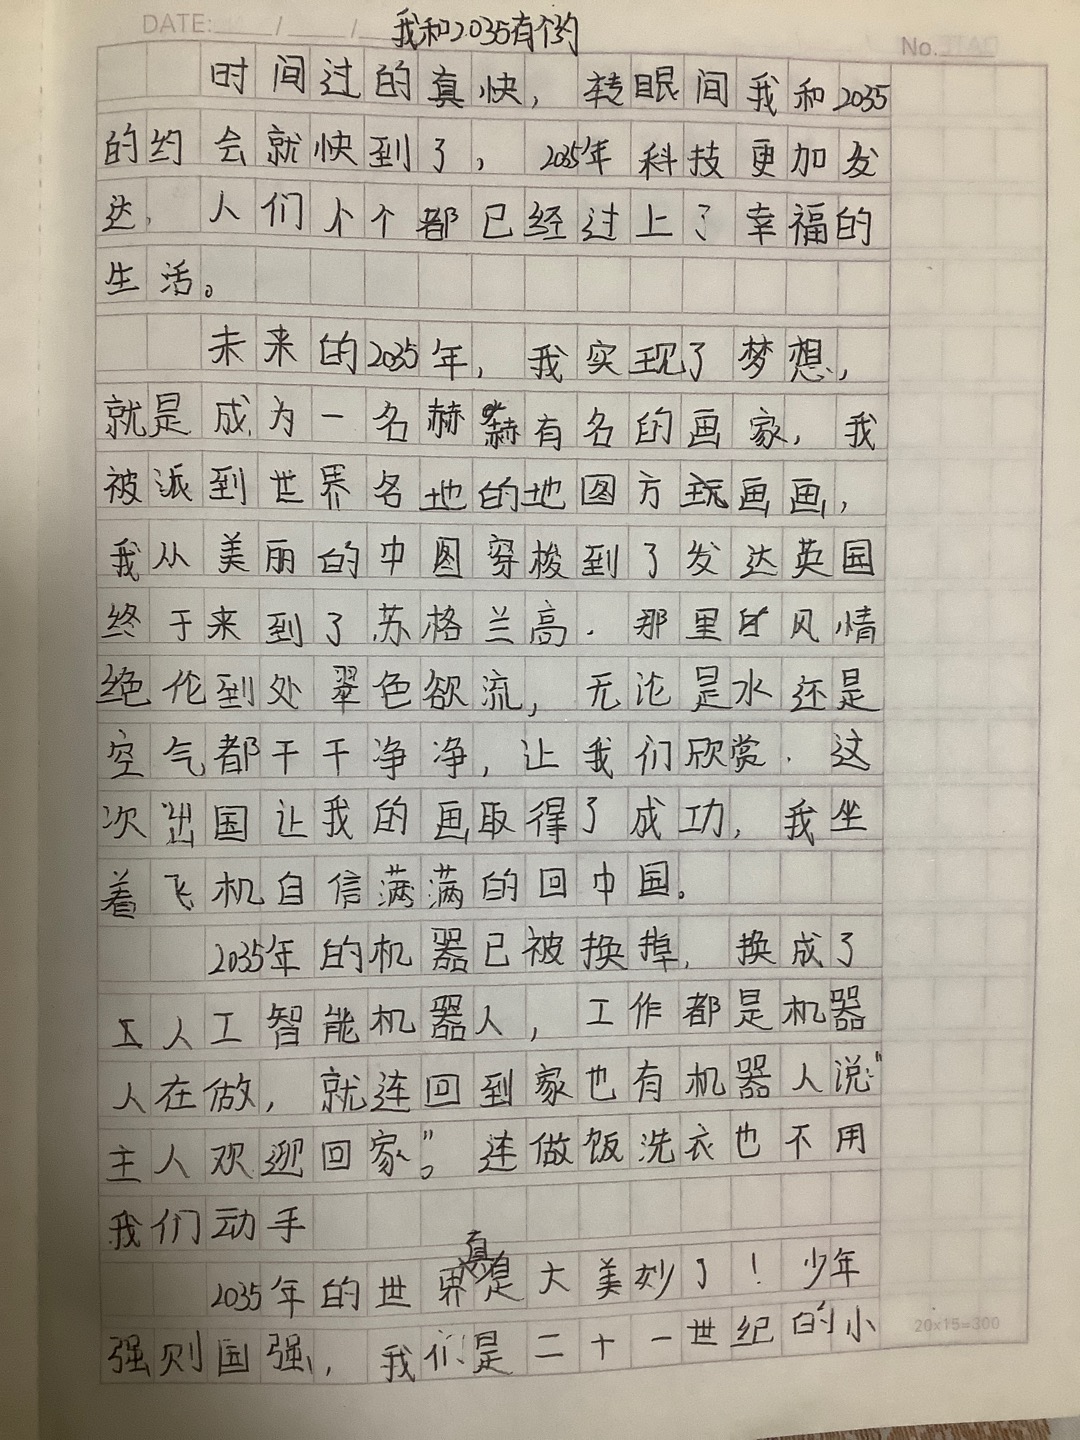 DATE: / /
我和2035有个约
No.
时间过的真快，转眼间我和2035
的约会就快到了，2035年科技更加发
达，人们个个都已经过上了幸福的
生活。
未来的2035年，我实现了梦想，
就是成为一名赫赫有名的画家，我
被派到世界名地的地图方玩画画，
我从美丽的中国穿梭到了发达英国
终于来到了苏格兰高．那里的风情
绝伦到处翠色欲流，无论是水还是
空气都干干净净，让我们欣赏．这
次出国让我的画取得了成功，我坐
着飞机自信满满的回中国。
2035年的机器已被换掉，换成了
人工智能机器人，工作都是机器
人在做，就连回到家也有机器人说：“
主人欢迎回家”。连做饭洗衣也不用
我们动手
2035年的世界真是大美妙了！少年
强则国强，我们是二十一世纪的小
20x15=300